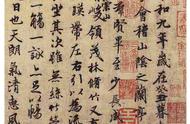 和九年歲在癸丑
會稽山陰之蘭亭
賢畢至少長
崇山
峻領茂林脩竹
帶左右引以為流
坐其次雖無絲竹
一觴一詠亦足以暢
日也天朗氣清惠風